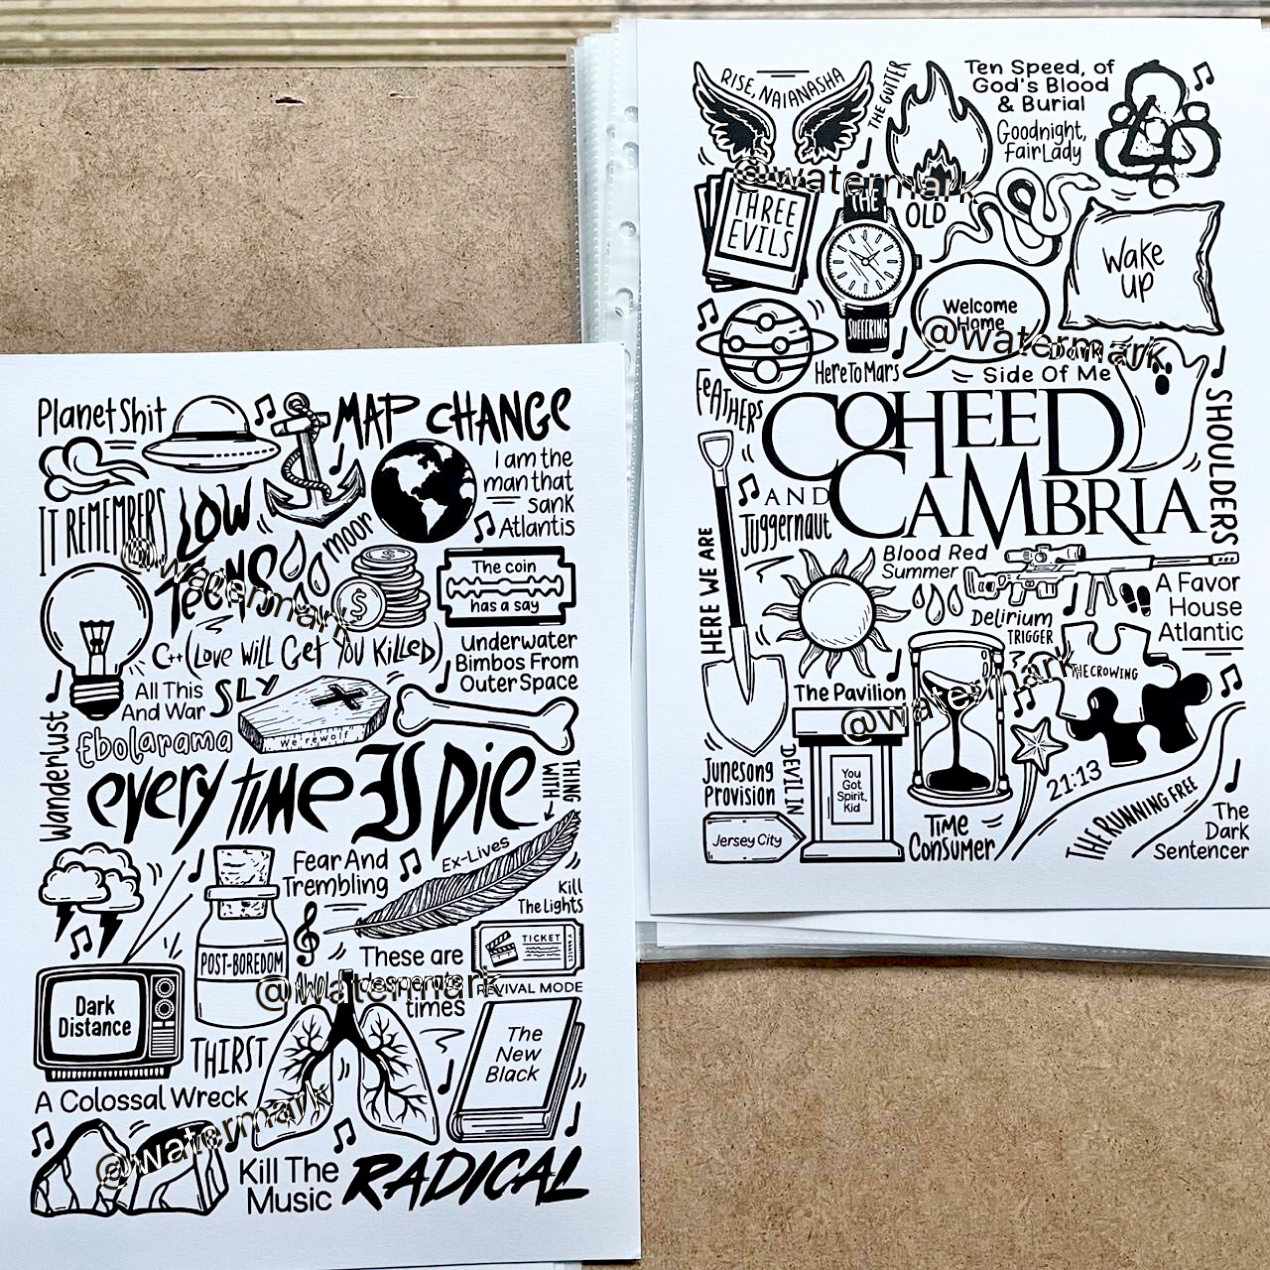 Planet Shit
MAP CHANGE
I am the
man that
sank
Atlantis
IT REMEMBERS
LOW
TEENS
moor
$
$
The coin
has a say
C++ (Love Will Get You Killed)
Underwater
Bimbos From
Outer Space
All This
And War
SLY
Ebolarama
werewolf
Wanderlust
every time I DIE
THING
WITH
Ex-Lives
Fear And
Trembling
Kill
The Lights
POST-BOREDOM
These are
desperate
times
AWOL
TICKET
REVIVAL MODE
Dark
Distance
THIRST
The
New
Black
A Colossal Wreck
Kill The
Music
RADICAL
@watermark
@watermark
@watermark
RISE, NAIANASHA
THE GUTTER
Ten Speed, of
God's Blood
& Burial
Goodnight,
Fair Lady
THREE
EVILS
THE
OLD
SUFFERING
Wake
up
Welcome
Home
Here To Mars
Dark
Side Of Me
FEATHERS
COHEED
AND CAMBRIA
SHOULDERS
Juggernaut
HERE WE ARE
Blood Red
Summer
A Favor
House
Atlantic
Delirium
TRIGGER
THE CROWING
The Pavilion
Junesong
Provision
DEVIL IN
Jersey City
You
Got
Spirit,
Kid
Time
Consumer
21:13
THE RUNNING FREE
The
Dark
Sentencer
@watermark
@watermark
@watermark